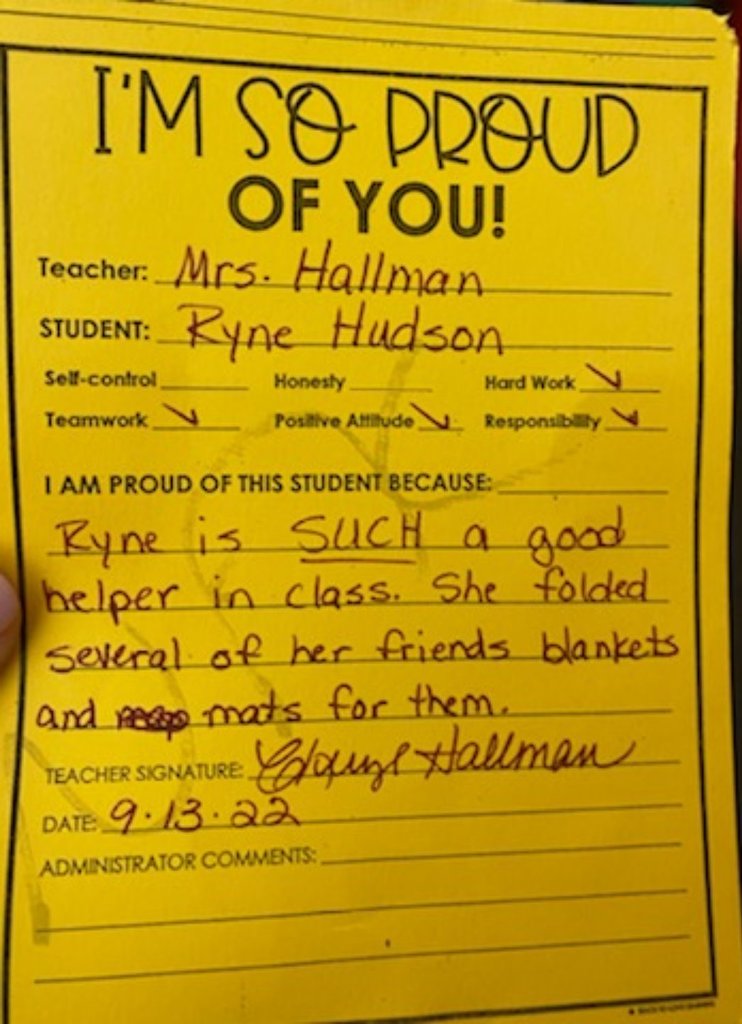 I'M SO PROUD
OF YOU!
Teacher: Mrs. Hallman
STUDENT: Ryne Hudson
Self-control Honesty Hard Work ✓
Teamwork ✓ Positive Attitude ✓ Responsibility ✓
I AM PROUD OF THIS STUDENT BECAUSE:
Ryne is SUCH a good
helper in class. She folded
several of her friends blankets
and mats for them.
TEACHER SIGNATURE: Hallman
DATE: 9.13.22
ADMINISTRATOR COMMENTS: